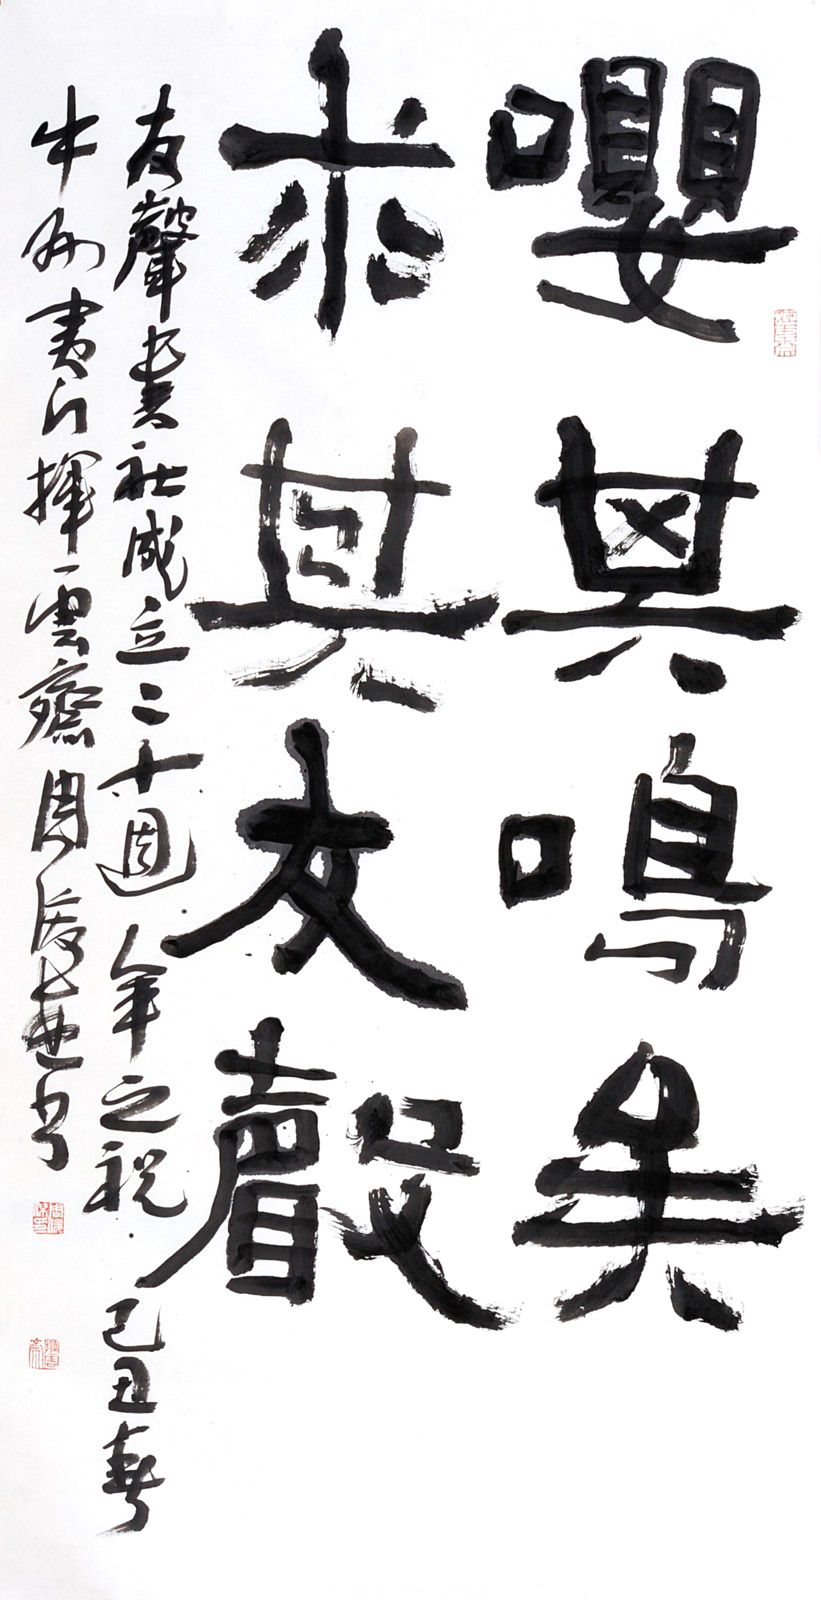 嚶其鳴矣
求其友聲
友聲書社成立二十週年之祝 己丑春
中州夷门揮雲齋周俊杰书